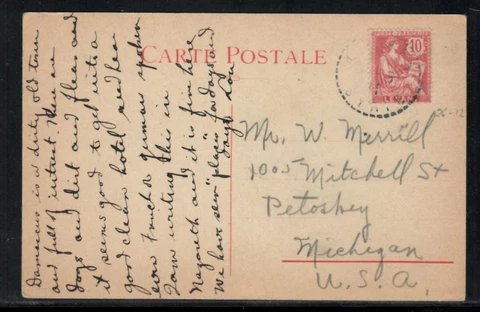 CARTE POSTALE
Damascus is a dirty old town
and full of interest. There are
dogs and dirt and fleas and
it seems good to get into a
good clean hotel and hear
even French & German spoken
I am writing this in
Nazareth and it is fine here
We have seen "places" for days and
days
10
Mr. W. Merrill
1005 Mitchell St
Petoskey
Michigan
U.S.A.